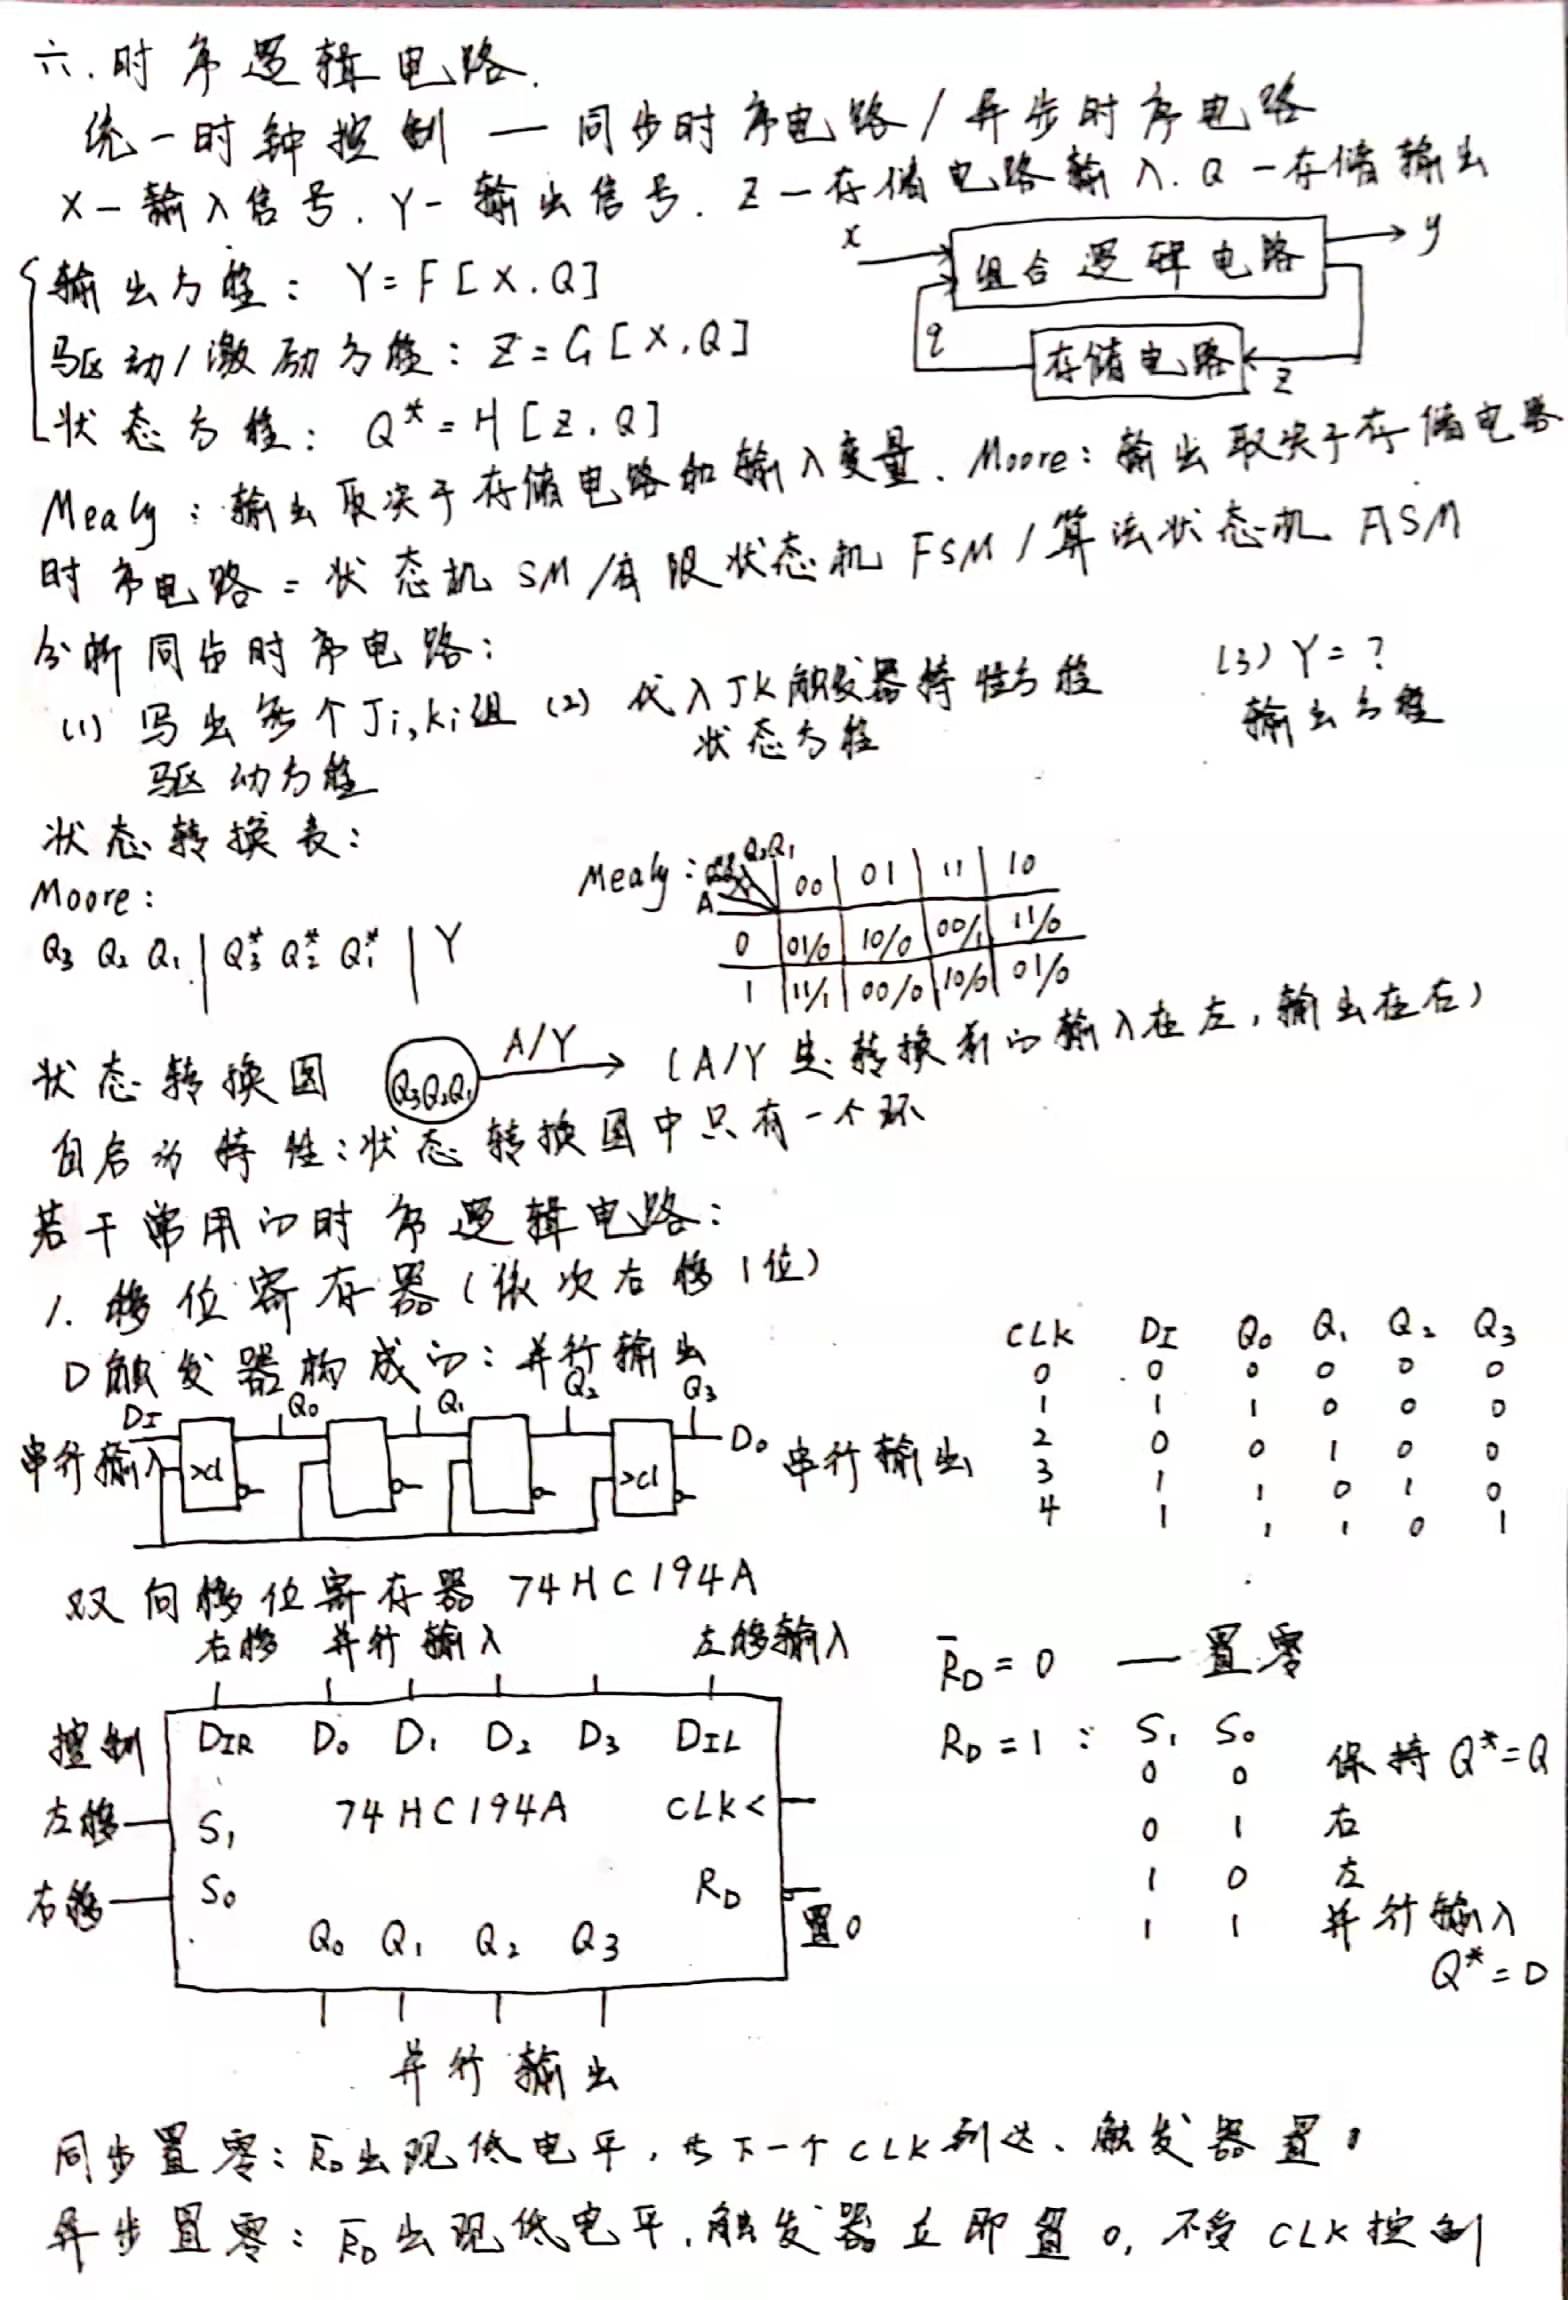 六. 时序逻辑电路.
统一时钟控制 — 同步时序电路 / 异步时序电路
X - 输入信号. Y - 输出信号. Z - 存储电路输入. Q - 存储输出
x 组合逻辑电路 y
q 存储电路 z
输出方程: Y = F [X. Q]
驱动/激励方程: Z = G [X, Q]
状态方程: Q* = H [Z. Q]
Mealy: 输出取决于存储电路和输入变量. Moore: 输出取决于存储电路
时序电路 = 状态机 SM / 有限状态机 FSM / 算法状态机 ASM
分析同步时序电路:
(1) 写出每个Ji,ki组 (2) 代入JK触发器特性方程 (3) Y = ?
驱动方程 状态方程 输出方程
状态转换表:
Moore:
Q3 Q2 Q1 | Q3* Q2* Q1* | Y
Mealy: A Q2Q1 00 01 11 10
0 01/0 10/0 00/1 11/0
1 11/1 00/0 10/0 01/0
状态转换图 Q3Q2Q1 A/Y (A/Y 是转换前的输入在左, 输出在右)
自启动特性: 状态转换图中只有一个环
若干常用的时序逻辑电路:
1. 移位寄存器 (依次右移1位)
D触发器构成的: 并行输出
DI Q0 Q1 Q2 Q3
串行输入 >C1 >C1 D0 串行输出
CLK DI Q0 Q1 Q2 Q3
0 0 0 0 0 0
1 1 1 0 0 0
2 0 0 1 0 0
3 1 1 0 1 0
4 1 1 1 0 1
双向移位寄存器 74HC194A
右移 并行输入 左移输入
控制 DIR D0 D1 D2 D3 DIL
左移 S1 74HC194A CLK<
右移 S0 RD 置0
Q0 Q1 Q2 Q3
并行输出
R̅D = 0 — 置零
RD = 1 : S1 S0
0 0 保持 Q* = Q
0 1 右
1 0 左
1 1 并行输入
Q* = D
同步置零: R̅D出现低电平, 等下一个CLK到达、触发器置0
异步置零: R̅D出现低电平, 触发器立即置0, 不受CLK控制